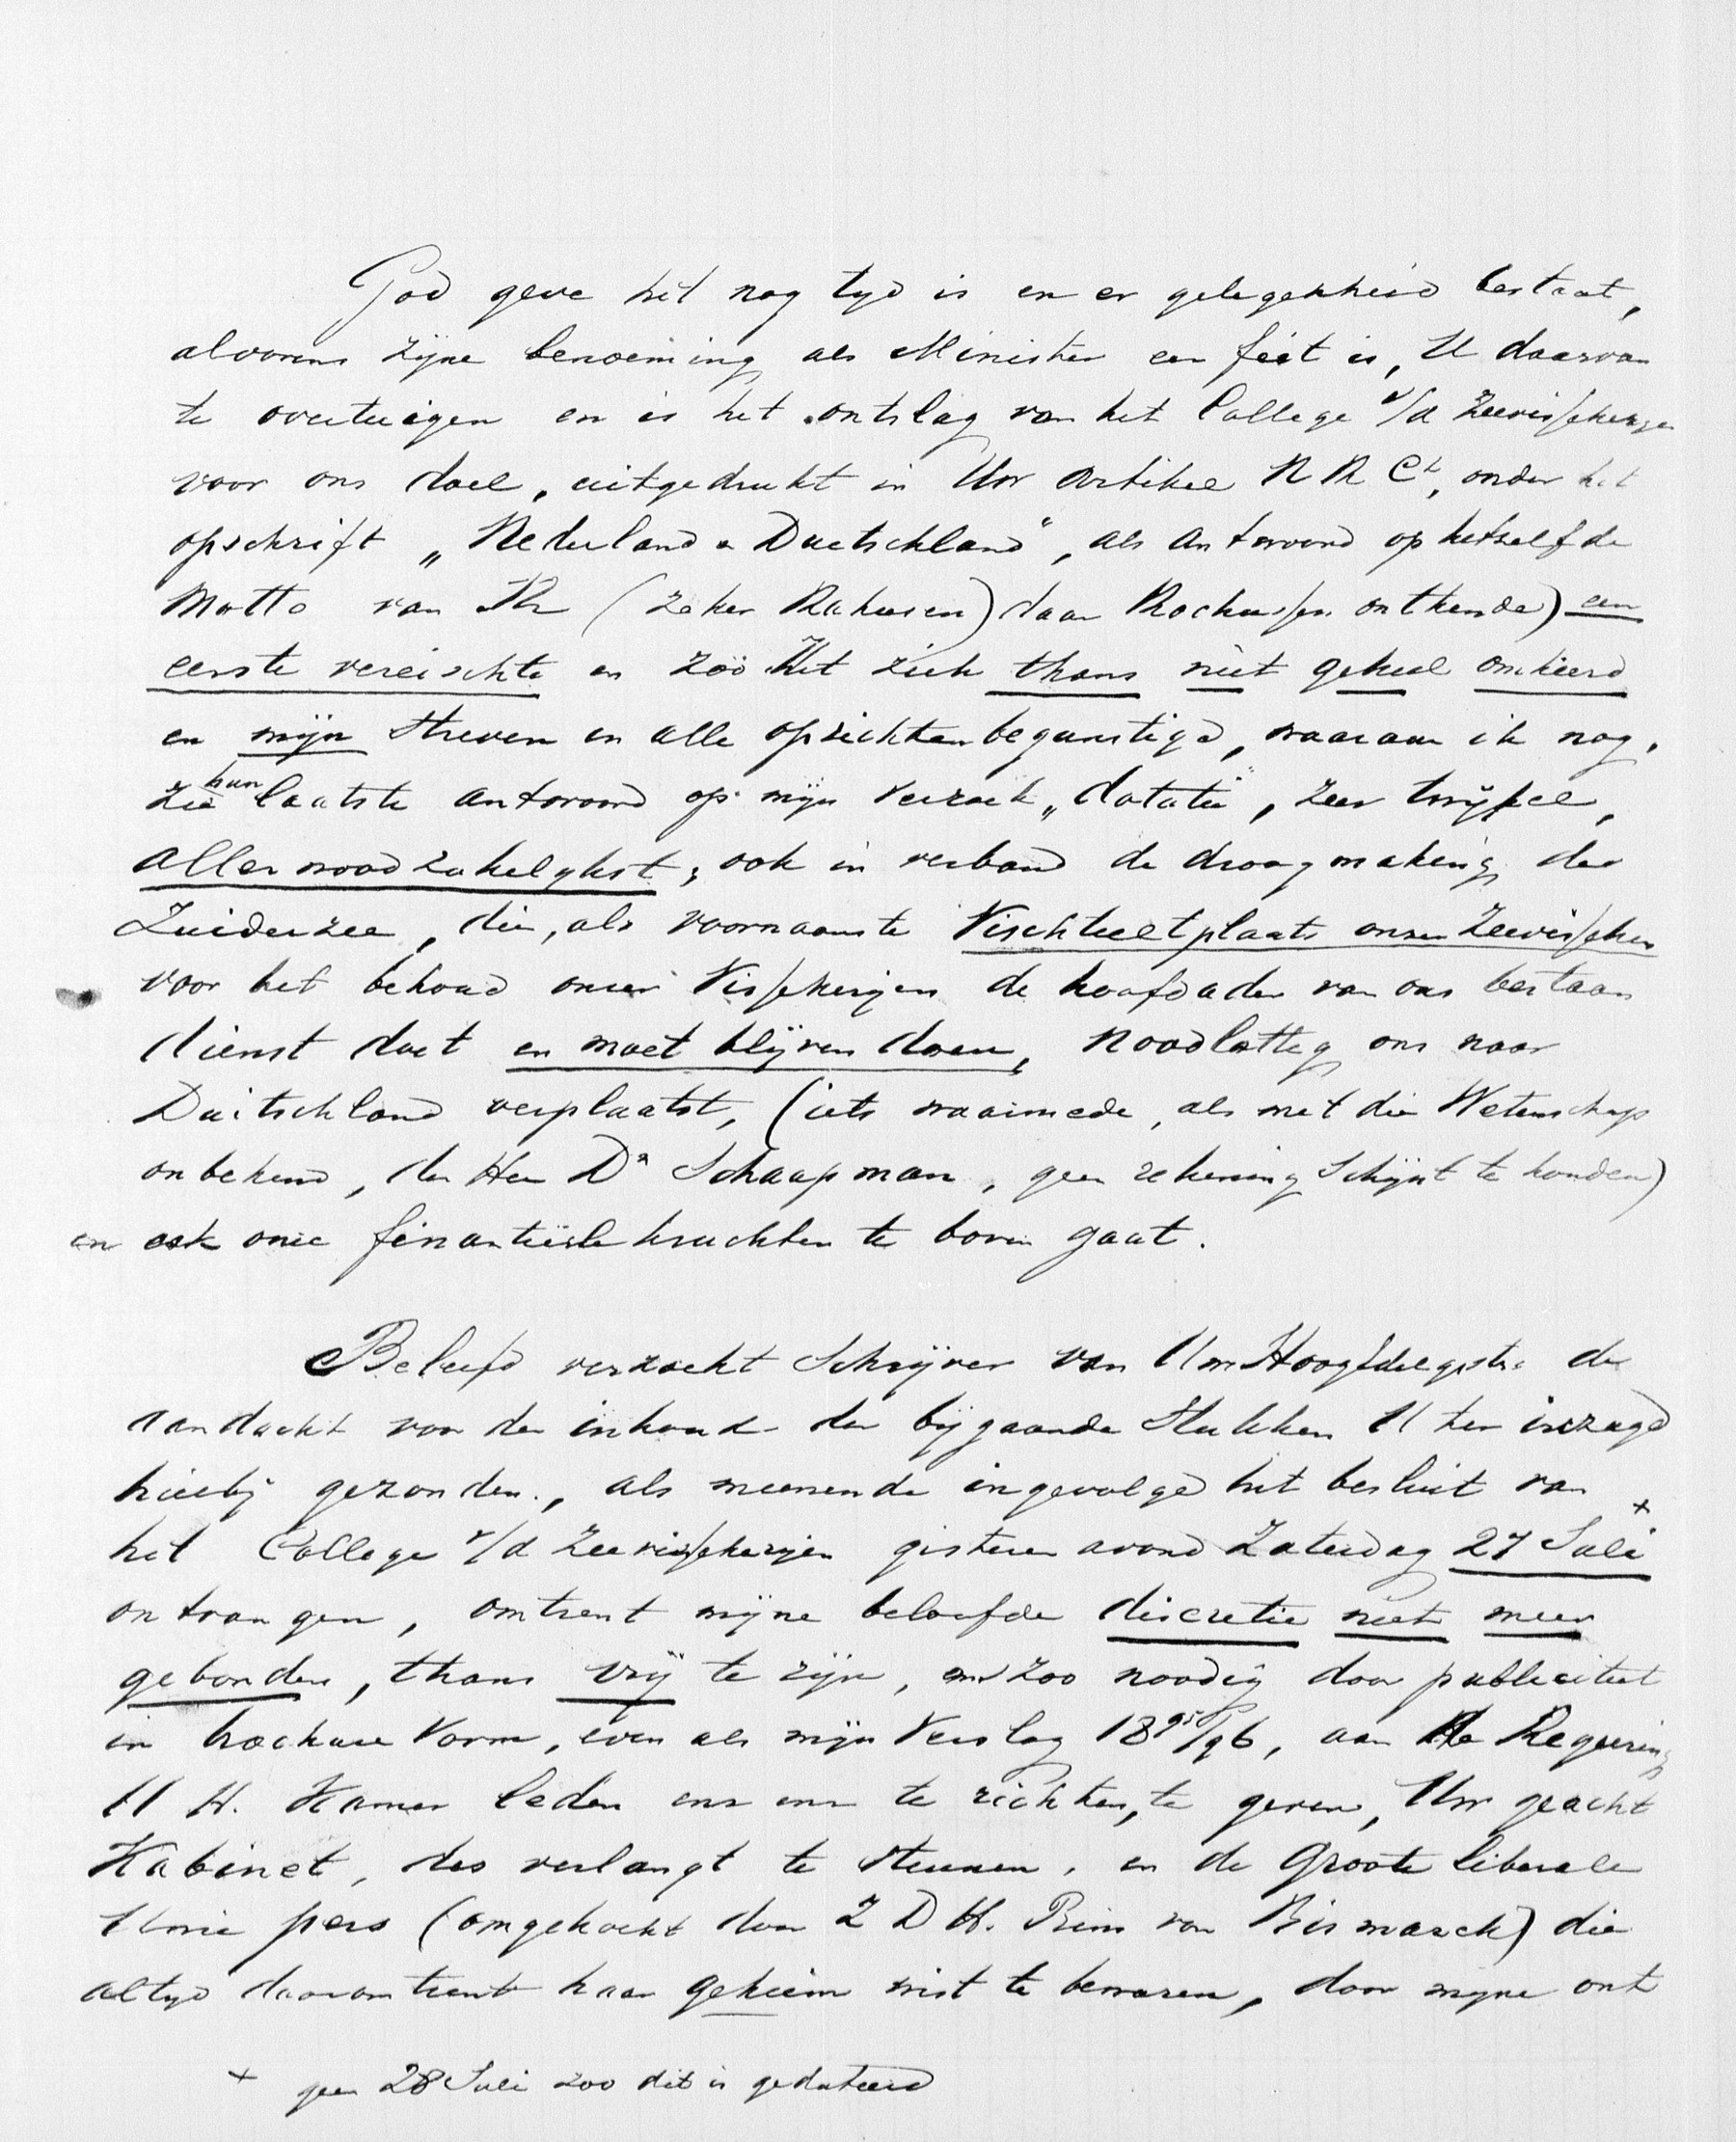 God geve het nog tyd is en er gelegenheid bestaat,
alvorens zyne benoeming als Minister een feit is, U daarvan
te overtuigen en is het ontslag van het College v/d Zeevisscheryen
voor ons doel, uitgedrukt in Uw Artikel N R Ct, onder het
opschrift „Nederland & Duitschland", als antwoord op hetzelfde
Motto van R (zeker Rahusen) daar Rochussen ontkende) een
eerste vereischte en zoo het zich thans niet geheel omkeerd
en mijn streven en alle opzichten begunstigd, waaraan ik nog,
zie hun laatste antwoord op mijn verzoek „dotatie", zeer twijfel,
allernoodzakelykst, ook in verband de droogmaking der
Zuiderzee, die, als voornaamste Vischteeltplaats onzer Zeevisschen
voor het behoud onzer Visscherijen de hoofdader van ons bestaan
dienst doet en moet blijven doen, noodlottig ons naar
Duitschland verplaatst, (iets waarmede, als met die Wetenschap
onbekend, den Heer Dr Schaapman, geen rekening schijnt te houden)
en ook onze finantiëele krachten te boven gaat.
Beleefd verzoekt Schrijver van Uw de
aandacht voor den inhoud der bijgaande Stukken U ter inzage
hierbij gezonden, als meenende ingevolge het besluit van
het College v/d Zeevisscherijen gisteren avond Zaterdag 27 Juli x
ontvangen, omtrent mijne beloofde discretie niet meer
gebonden, thans vrij te zijn, en zoo noodig door publiciteit
in brochure vorm, even als mijn Verslag 1895/96, aan de Regeering
U H. Kamer leden en te richten, te geven, Uw geacht
Kabinet, des verlangt te steunen, en de Groote liberale
Unie pers (omgekocht door Z D H. Prins von Bismarck) die
altyd daaromtrent haar geheim wist te bewaren, door myne ont
x geen 28 Juli zoo dit is gedateerd